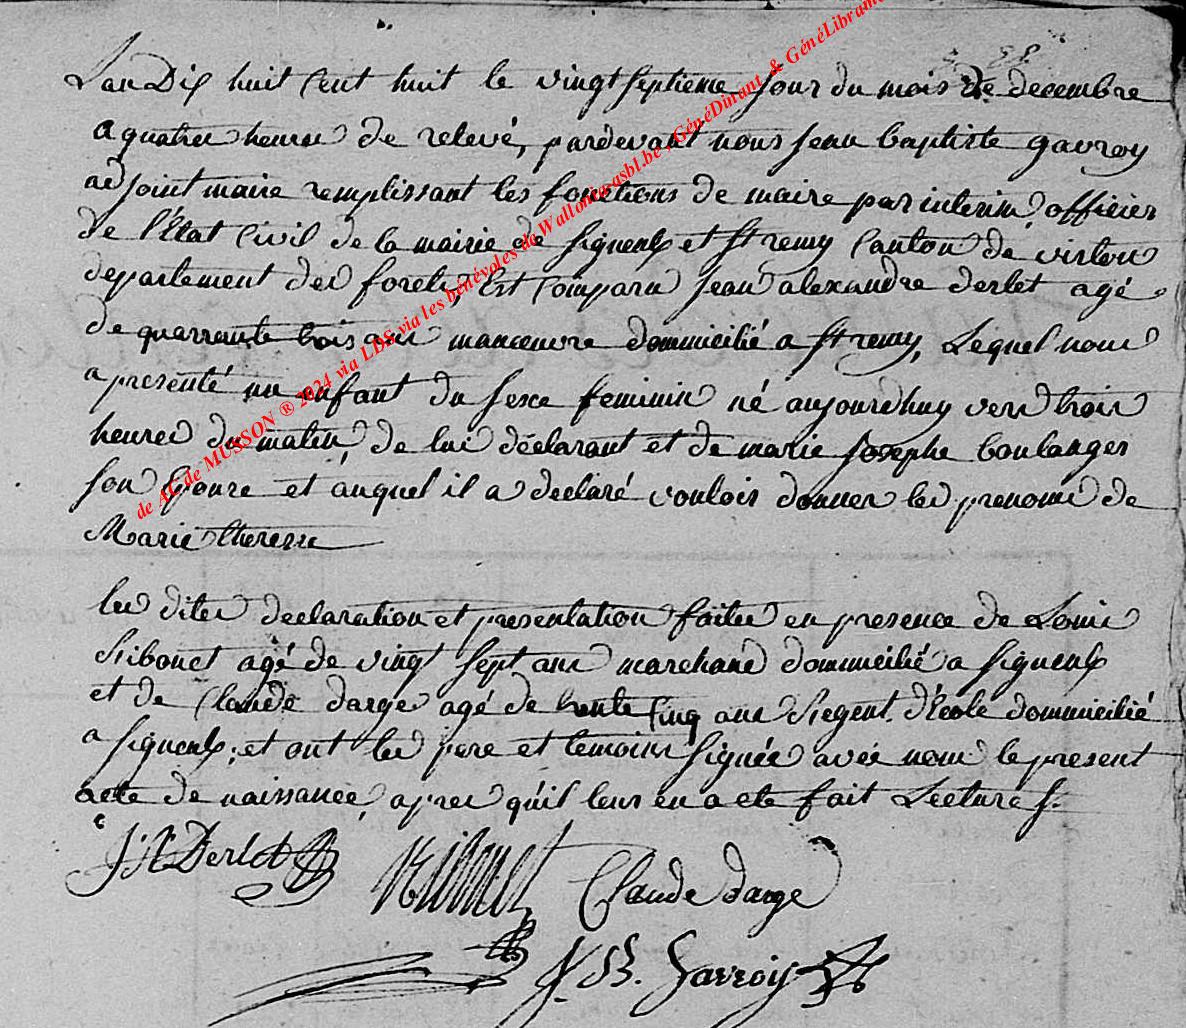 Lan Dix huit Cent huit le vingt septieme jour du mois de decembre
a quatre heures de relevé, pardevant nous jean baptiste gavroy
adjoint maire remplissant les fonctions de maire par interim, officier
de l'État Civil de la mairie de signeulx et st remy Canton de virton
departement des forets, Est Comparu jean alexandre derlet agé
de quarrante trois ans manoeuvre dommicilié a st remy, Lequel nous
a presenté un enfant du sexe feminin né aujourdhuy vers trois
heures du matin, de lui déclarant et de marie josephe boulanger
son Epouse et auquel il a declaré vouloir donner les prenoms de
Marie theresse
les dites declaration et presentation faites en presence de Louis
Ribonet agé de vingt sept ans marchand dommicilié a signeulx
et de Claude darge agé de trente Cinq ans Regent d'École dommicilié
a signeulx; et ont les pere et temoins signée avec nous le present
acte de naissance, apres qu'il leur en a eté fait Lecture /.
J: A Derlet
Ribonet
Claude darge
J. B. Gavroiy
de AC de MUSSON ® 2024 via LDS via les bénévoles de Wallonica asbl.be , GénéDinant & GénéLibramo